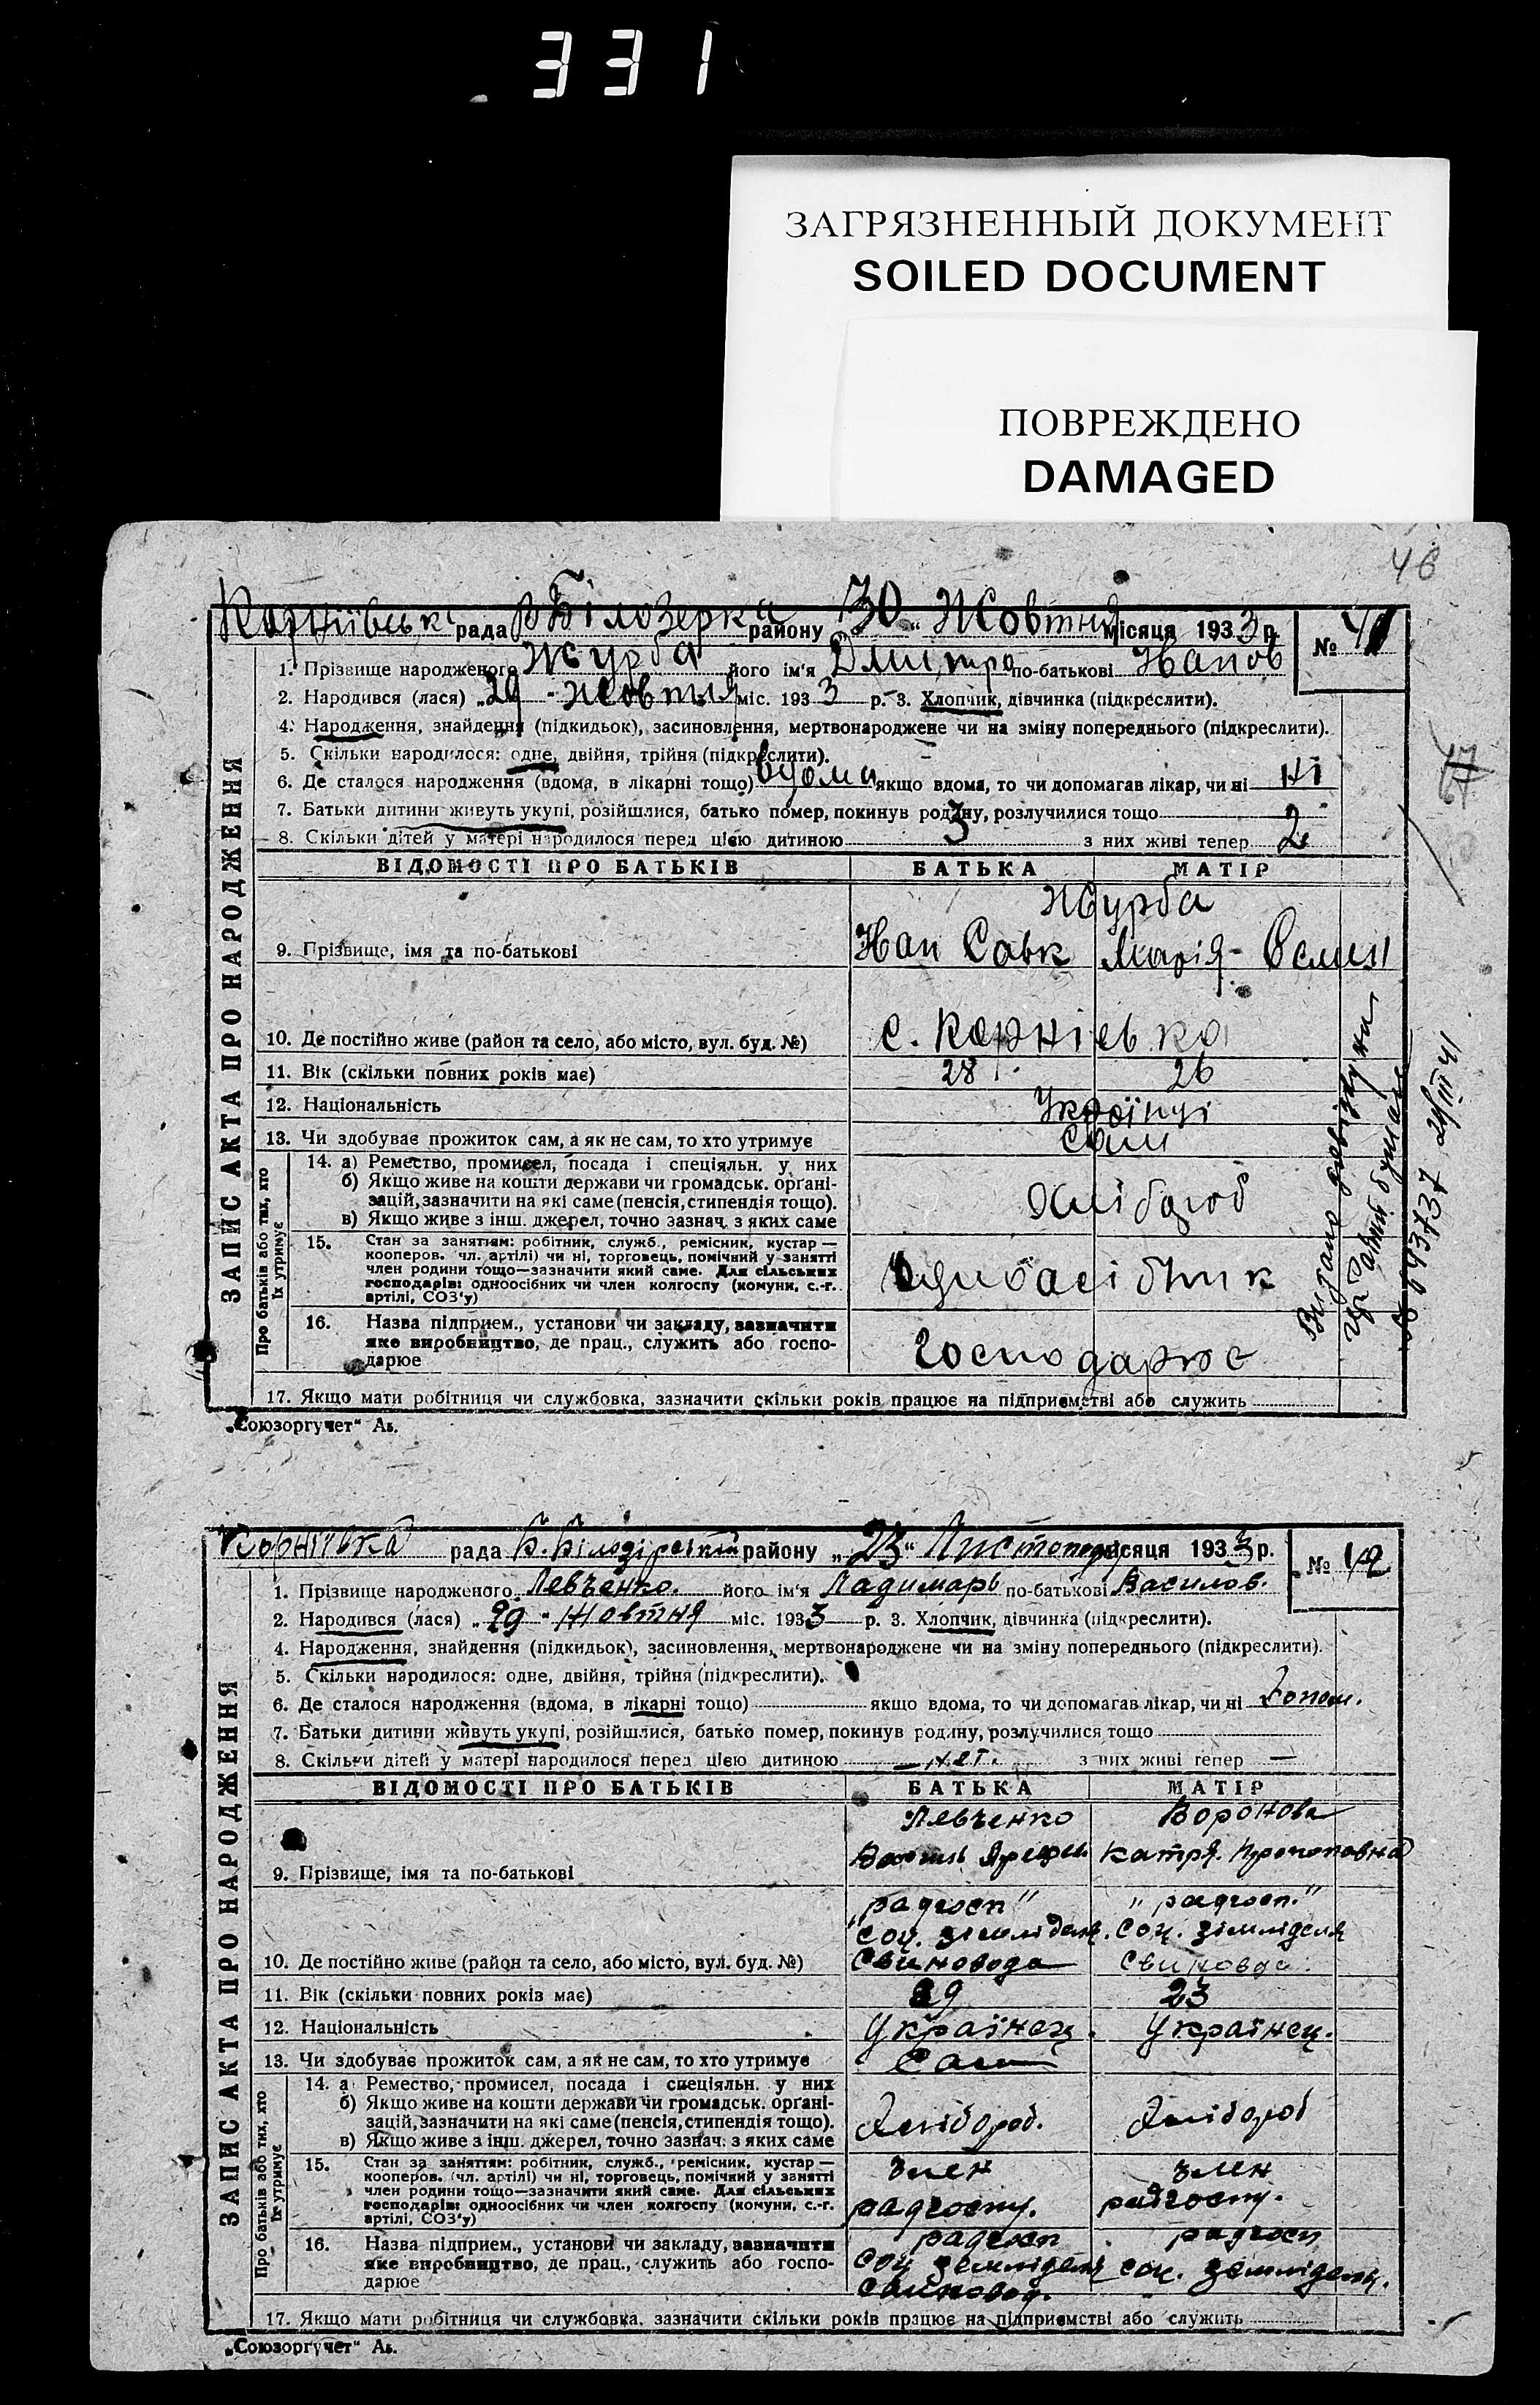 331
ЗАГРЯЗНЕННЫЙ ДОКУМЕНТ
SOILED DOCUMENT
ПОВРЕЖДЕНО
DAMAGED
46
рада В Білозерка району 30 " Жовтня місяця 1933 р.
№ 41
1. Прізвище народженого Журба його ім'я Дмитро по-батькові Іванов
2. Народився (лася) „29 " жовтня міс. 1933 р. 3. Хлопчик, дівчинка (підкреслити).
4. Народження, знайдення (підкидьок), засиновлення, мертвонароджене чи на зміну попереднього (підкреслити).
5. Скільки народилося: одне, двійня, трійня (підкреслити).
6. Де сталося народження (вдома, в лікарні тощо) вдома якщо вдома, то чи допомагав лікар, чи ні ні
7. Батьки дитини живуть укупі, розійшлися, батько помер, покинув родину, розлучилися тощо
8. Скільки дітей у матері народилося перед цією дитиною 3 з них живі тепер 2
ВІДОМОСТІ ПРО БАТЬКІВ БАТЬКА МАТІР
Журба
9. Прізвище, імя та по-батькові Іван Савк Марія
10. Де постійно живе (район та село, або місто, вул. буд. №) с. Корнієвка
11. Вік (скільки повних років має) 28 26
12. Національність Українці
13. Чи здобуває прожиток сам, а як не сам, то хто утримує Сами
14. а) Ремество, промисел, посада і спеціяльн. у них
б) Якщо живе на кошти держави чи громадськ. орґані-
зацій, зазначити на які саме (пенсія, стипендія тощо).
в) Якщо живе з інш. джерел, точно зазнач. з яких саме
Хлібороб
15. Стан за заняттям: робітник, служб., ремісник, кустар—
кооперов. чл. артілі) чи ні, торговець, помічний у занятті
член родини тощо—зазначити який саме. Для сільських
господарів: одноосібних чи член колгоспу (комуни, с.-г.
артілі, СОЗ'у)
16. Назва підприєм., установи чи закладу, зазначити
яке виробництво, де прац., служить або госпо-
дарює
Господарює
17. Якщо мати робітниця чи службовка, зазначити скільки років працює на підприємстві або служить
„Союзоргучет" Аь.
ЗАПИС АКТА ПРО НАРОДЖЕННЯ
Про батьків або тих, хто
їх утримує
Корніівка рада району „23" Листопад місяця 1933 р.
№ 42
1. Прізвище народженого Левченко. його ім'я Ладимарь по-батькові Василов.
2. Народився (лася) „29 " Жовтня міс. 1933 р. 3. Хлопчик, дівчинка (підкреслити).
4. Народження, знайдення (підкидьок), засиновлення, мертвонароджене чи на зміну попереднього (підкреслити).
5. Скільки народилося: одне, двійня, трійня (підкреслити).
6. Де сталося народження (вдома, в лікарні тощо) якщо вдома, то чи допомагав лікар, чи ні допом.
7. Батьки дитини живуть укупі, розійшлися, батько помер, покинув родину, розлучилися тощо
8. Скільки дітей у матері народилося перед цією дитиною — нет. з них живі тепер —
ВІДОМОСТІ ПРО БАТЬКІВ БАТЬКА МАТІР
Левченко Воронова
9. Прізвище, імя та по-батькові Василь Катря. Прокоповна
„радгосп" „радгосп."
Соц. Соц. зімлідєля
10. Де постійно живе (район та село, або місто, вул. буд. №) Свиновода
11. Вік (скільки повних років має) 29 23
12. Національність Українец. Українец.
13. Чи здобуває прожиток сам, а як не сам, то хто утримує Сам
14. а Ремество, промисел, посада і спеціяльн. у них
б) Якщо живе на кошти держави чи громадськ. орґані-
зацій, зазначити на які саме (пенсія, стипендія тощо).
в) Якщо живе з інш. джерел, точно зазнач. з яких саме
Хлібороб. Хлібороб
15. Стан за заняттям: робітник, служб., ремісник, кустар—
кооперов. (чл. артілі) чи ні, торговець, помічний у занятті
член родини тощо—зазначити який саме. Для сільських
господарів: одноосібник чи член колгоспу (комуни, с.-г.
артілі, СОЗ'у)
член член
радгоспу. радгоспу.
16. Назва підприєм., установи чи закладу, зазначити
яке виробництво, де прац., служить або госпо-
дарює
радгосп радгосп
Соц землідєля соц.
Свиновод.
17. Якщо мати робітниця чи службовка, зазначити скільки років працює на підприємстві або служить
„Союзоргучет" Аь.
ЗАПИС АКТА ПРО НАРОДЖЕННЯ
Про батьків або тих, хто
їх утримує